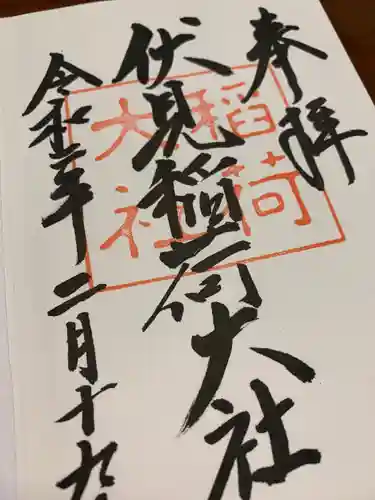 奉拝
伏見稲荷大社
稲荷
大社
令和二年二月十九